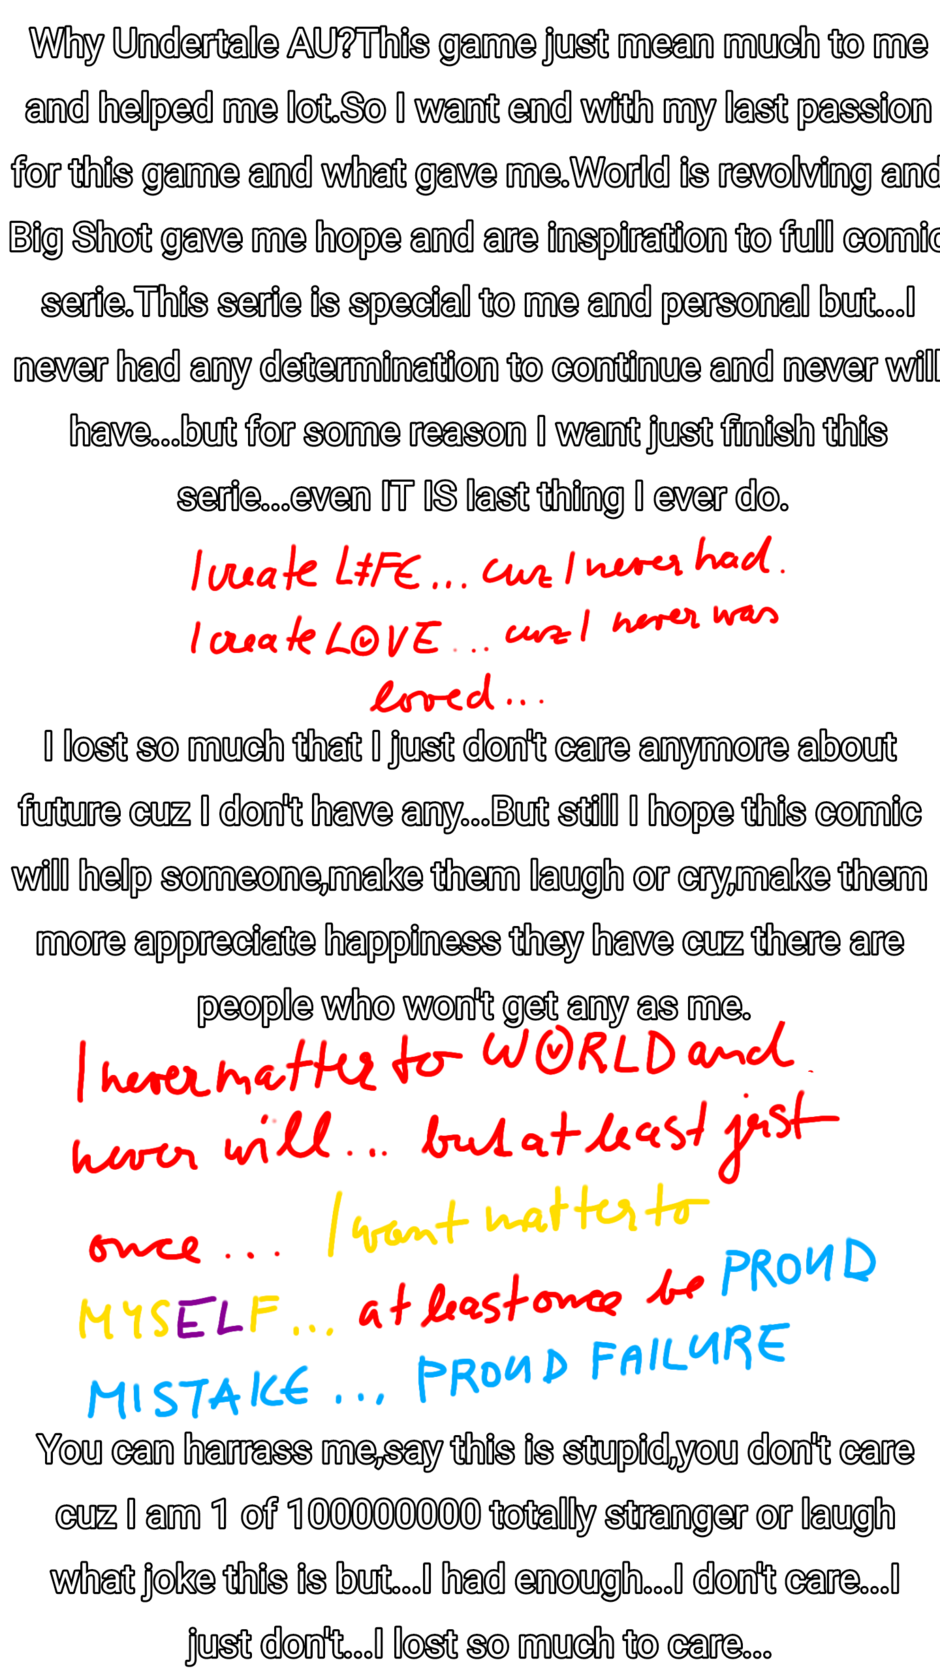 Why Undertale AU?This game just mean much to me
and helped me lot.So I want end with my last passion
for this game and what gave me.World is revolving and
Big Shot gave me hope and are inspiration to full comic
serie.This serie is special to me and personal but...I
never had any determination to continue and never will
have...but for some reason I want just finish this
serie...even IT IS last thing I ever do.
I create LIFE... cuz I never had.
I create LOVE... cuz I never was
loved...
I lost so much that I just don't care anymore about
future cuz I don't have any...But still I hope this comic
will help someone,make them laugh or cry,make them
more appreciate happiness they have cuz there are
people who won't get any as me.
I never matter to WORLD and
never will... but at least just
once... I want matter to
MYSELF... at least once be PROUD
MISTAKE... PROUD FAILURE
You can harrass me,say this is stupid,you don't care
cuz I am 1 of 100000000 totally stranger or laugh
what joke this is but...I had enough...I don't care...I
just don't...I lost so much to care...